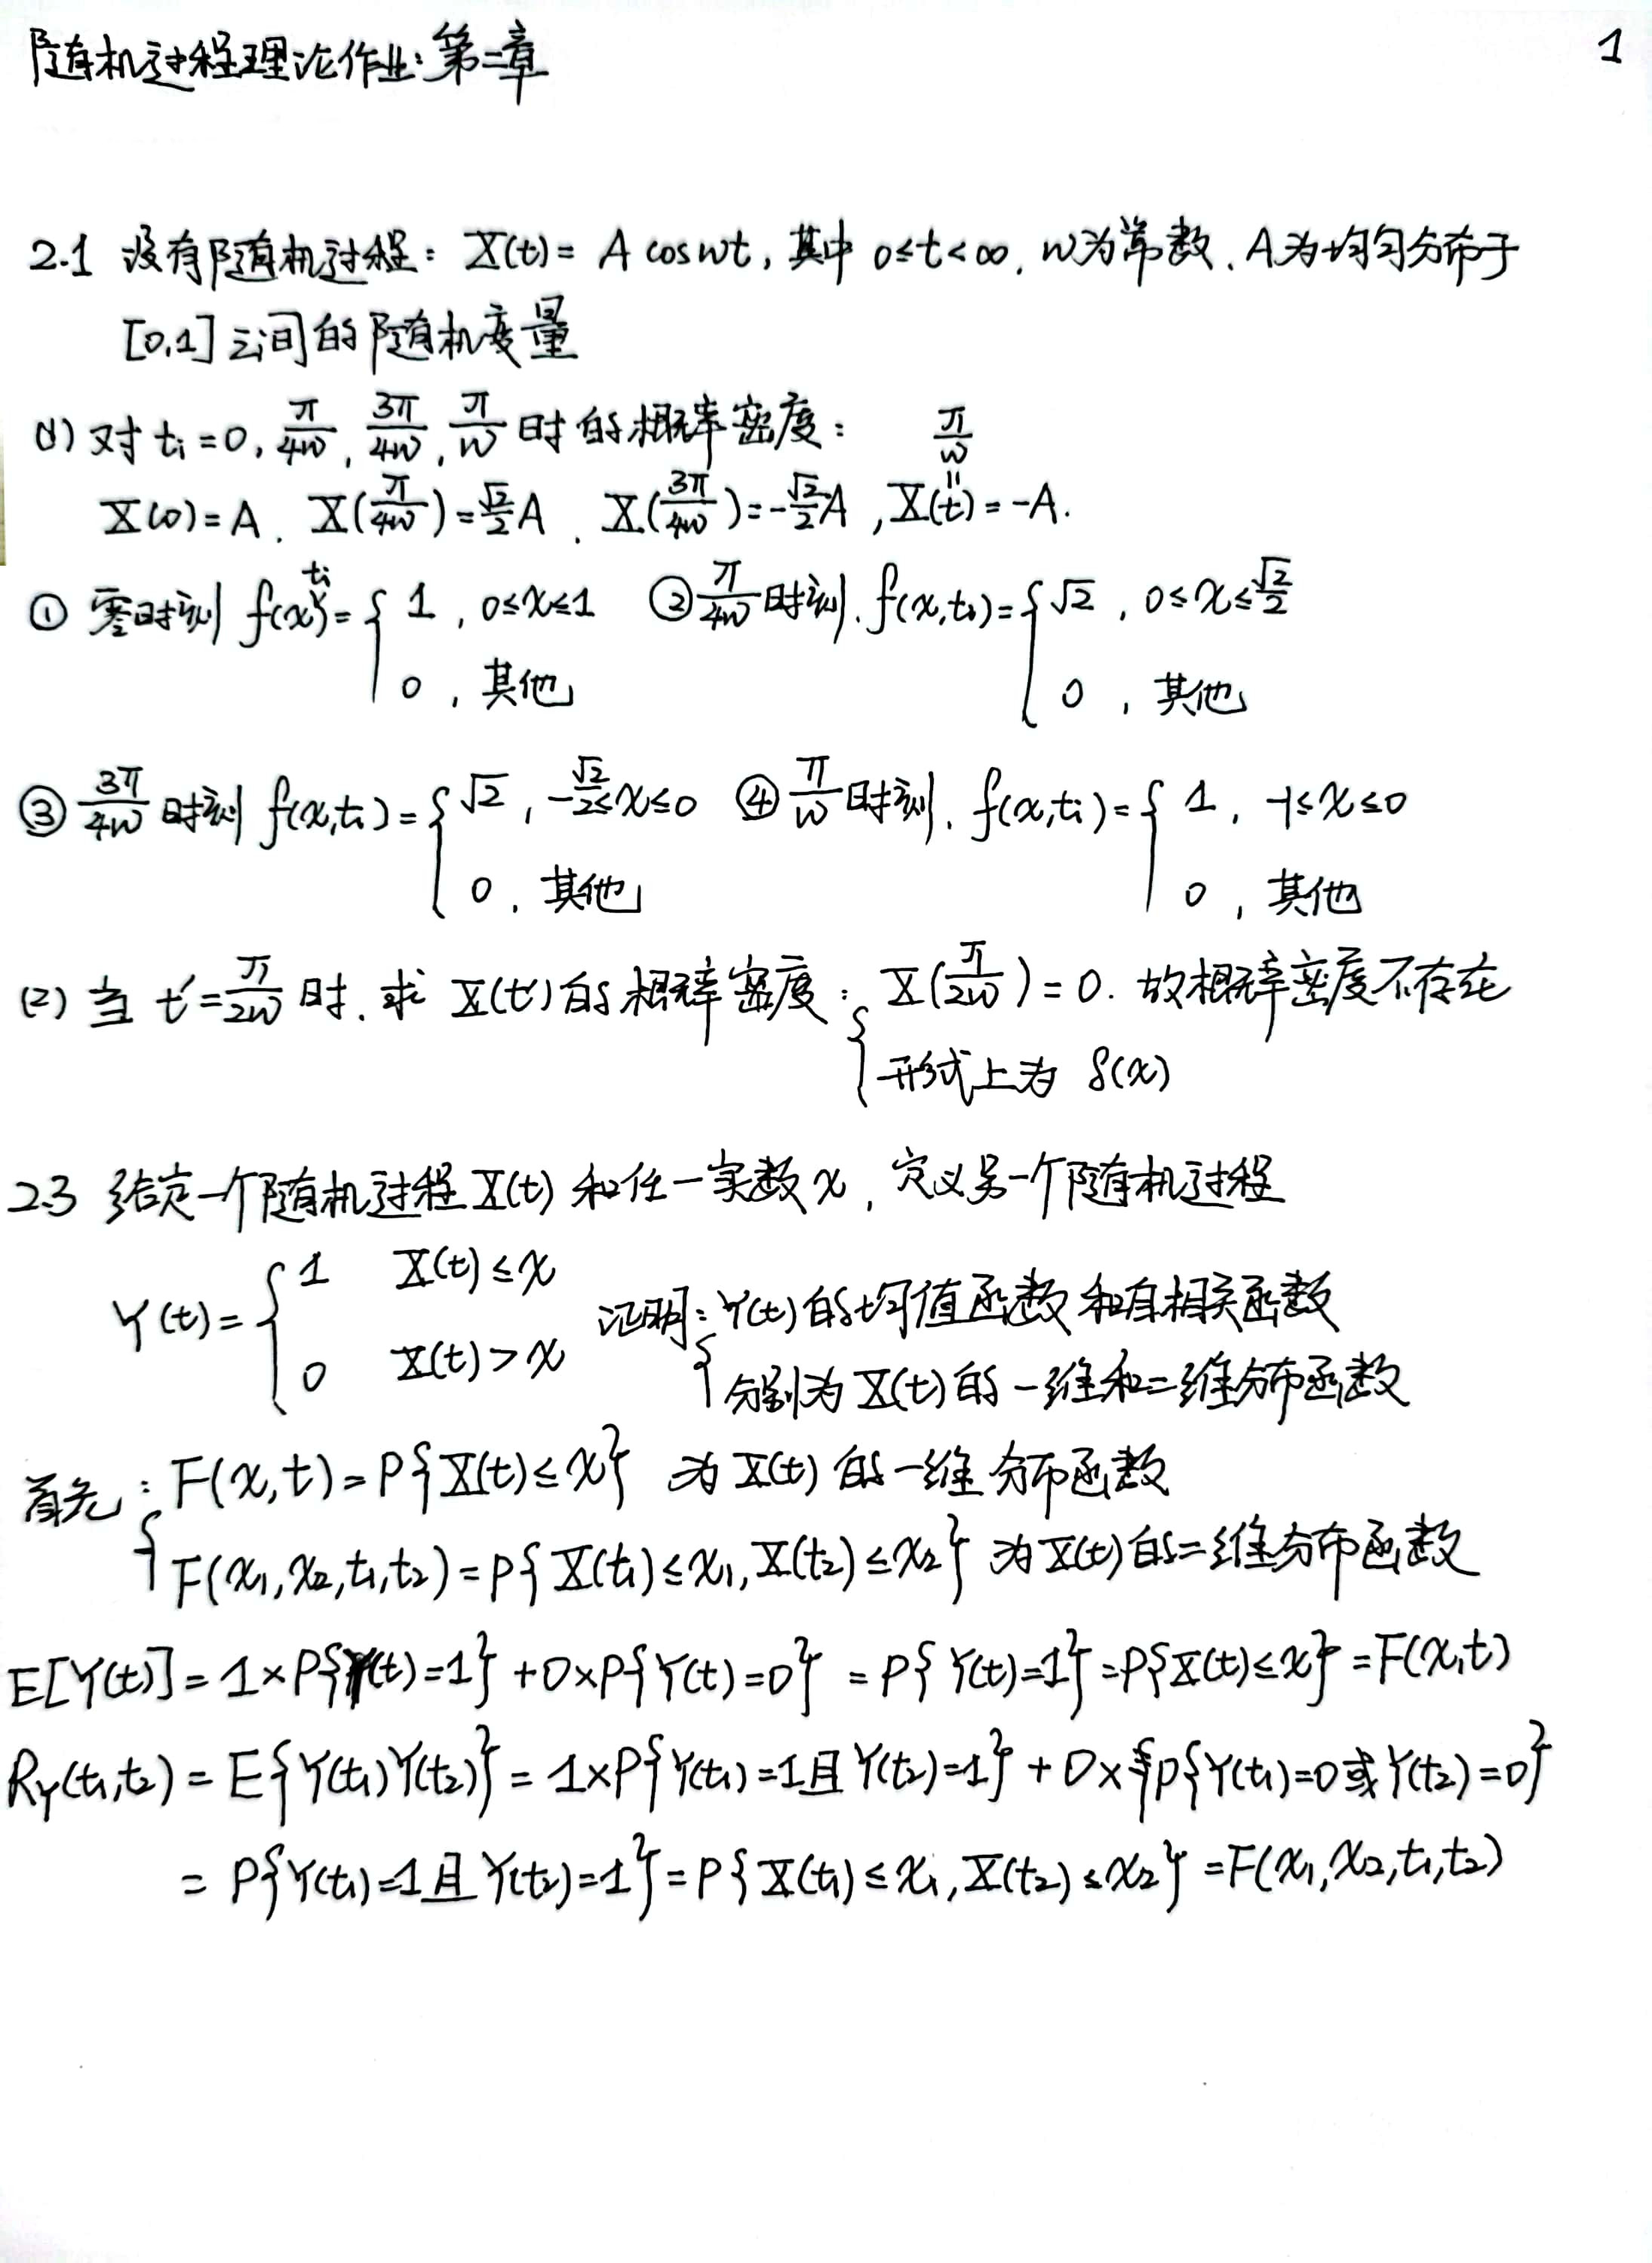 随机过程理论作业：第二章
1
2.1 设有随机过程：X(t)= A cosωt，其中 0≤t<∞，ω为常数，A为均匀分布于
[0,1]之间的随机变量
(1) 对 tᵢ=0, π/4ω, 3π/4ω, π/ω 时的概率密度：
X(0)=A, X(π/4ω)=√2/2 A, X(3π/4ω)=-√2/2 A, X(t=π/ω)=-A.
① 零时刻 f(x,tᵢ)={ 1, 0≤x≤1 ② π/4ω时刻, f(x,tᵢ)={ √2, 0≤x≤√2/2
0, 其他 0, 其他
③ 3π/4ω 时刻 f(x,tᵢ)={ √2, -√2/2≤x≤0 ④ π/ω时刻, f(x,tᵢ)={ 1, -1≤x≤0
0, 其他 0, 其他
(2) 当 t'=π/2ω 时，求 X(t')的概率密度：X(π/2ω)=0. 故概率密度不存在
{ 形式上为 δ(x)
2.3 给定一个随机过程X(t) 和任一实数x，定义另一个随机过程
Y(t)={ 1 X(t)≤x
0 X(t)>x
证明：Y(t)的均值函数和自相关函数
{ 分别为X(t)的一维和二维分布函数
首先：F(x,t)=P{X(t)≤x} 为X(t)的一维分布函数
{ F(x₁,x₂,t₁,t₂)=P{X(t₁)≤x₁,X(t₂)≤x₂} 为X(t)的二维分布函数
E[Y(t)]=1×P{Y(t)=1}+0×P{Y(t)=0} =P{Y(t)=1}=P{X(t)≤x}=F(x,t)
R_Y(t₁,t₂)=E{Y(t₁)Y(t₂)}=1×P{Y(t₁)=1且Y(t₂)=1}+0×P{Y(t₁)=0或Y(t₂)=0}
=P{Y(t₁)=1且Y(t₂)=1}=P{X(t₁)≤x₁,X(t₂)≤x₂}=F(x₁,x₂,t₁,t₂)